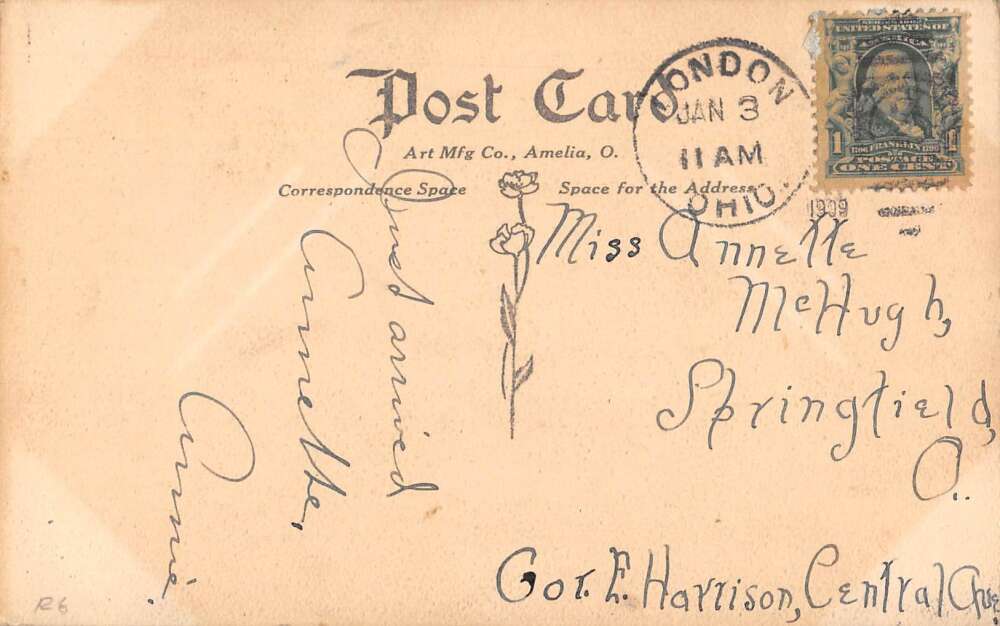 Post Card
Art Mfg Co., Amelia, O.
Correspondence Space
Space for the Address
LONDON
JAN 3
11 AM
OHIO.
1909
UNITED STATES OF
AMERICA
1 1
1706 FRANKLIN 1790
POSTAGE
ONE CENT
Miss Annette
McHugh,
Springfield,
O.
Cor. E. Harrison, Central Ave
Just arrived
Annette,
Annie.
R6